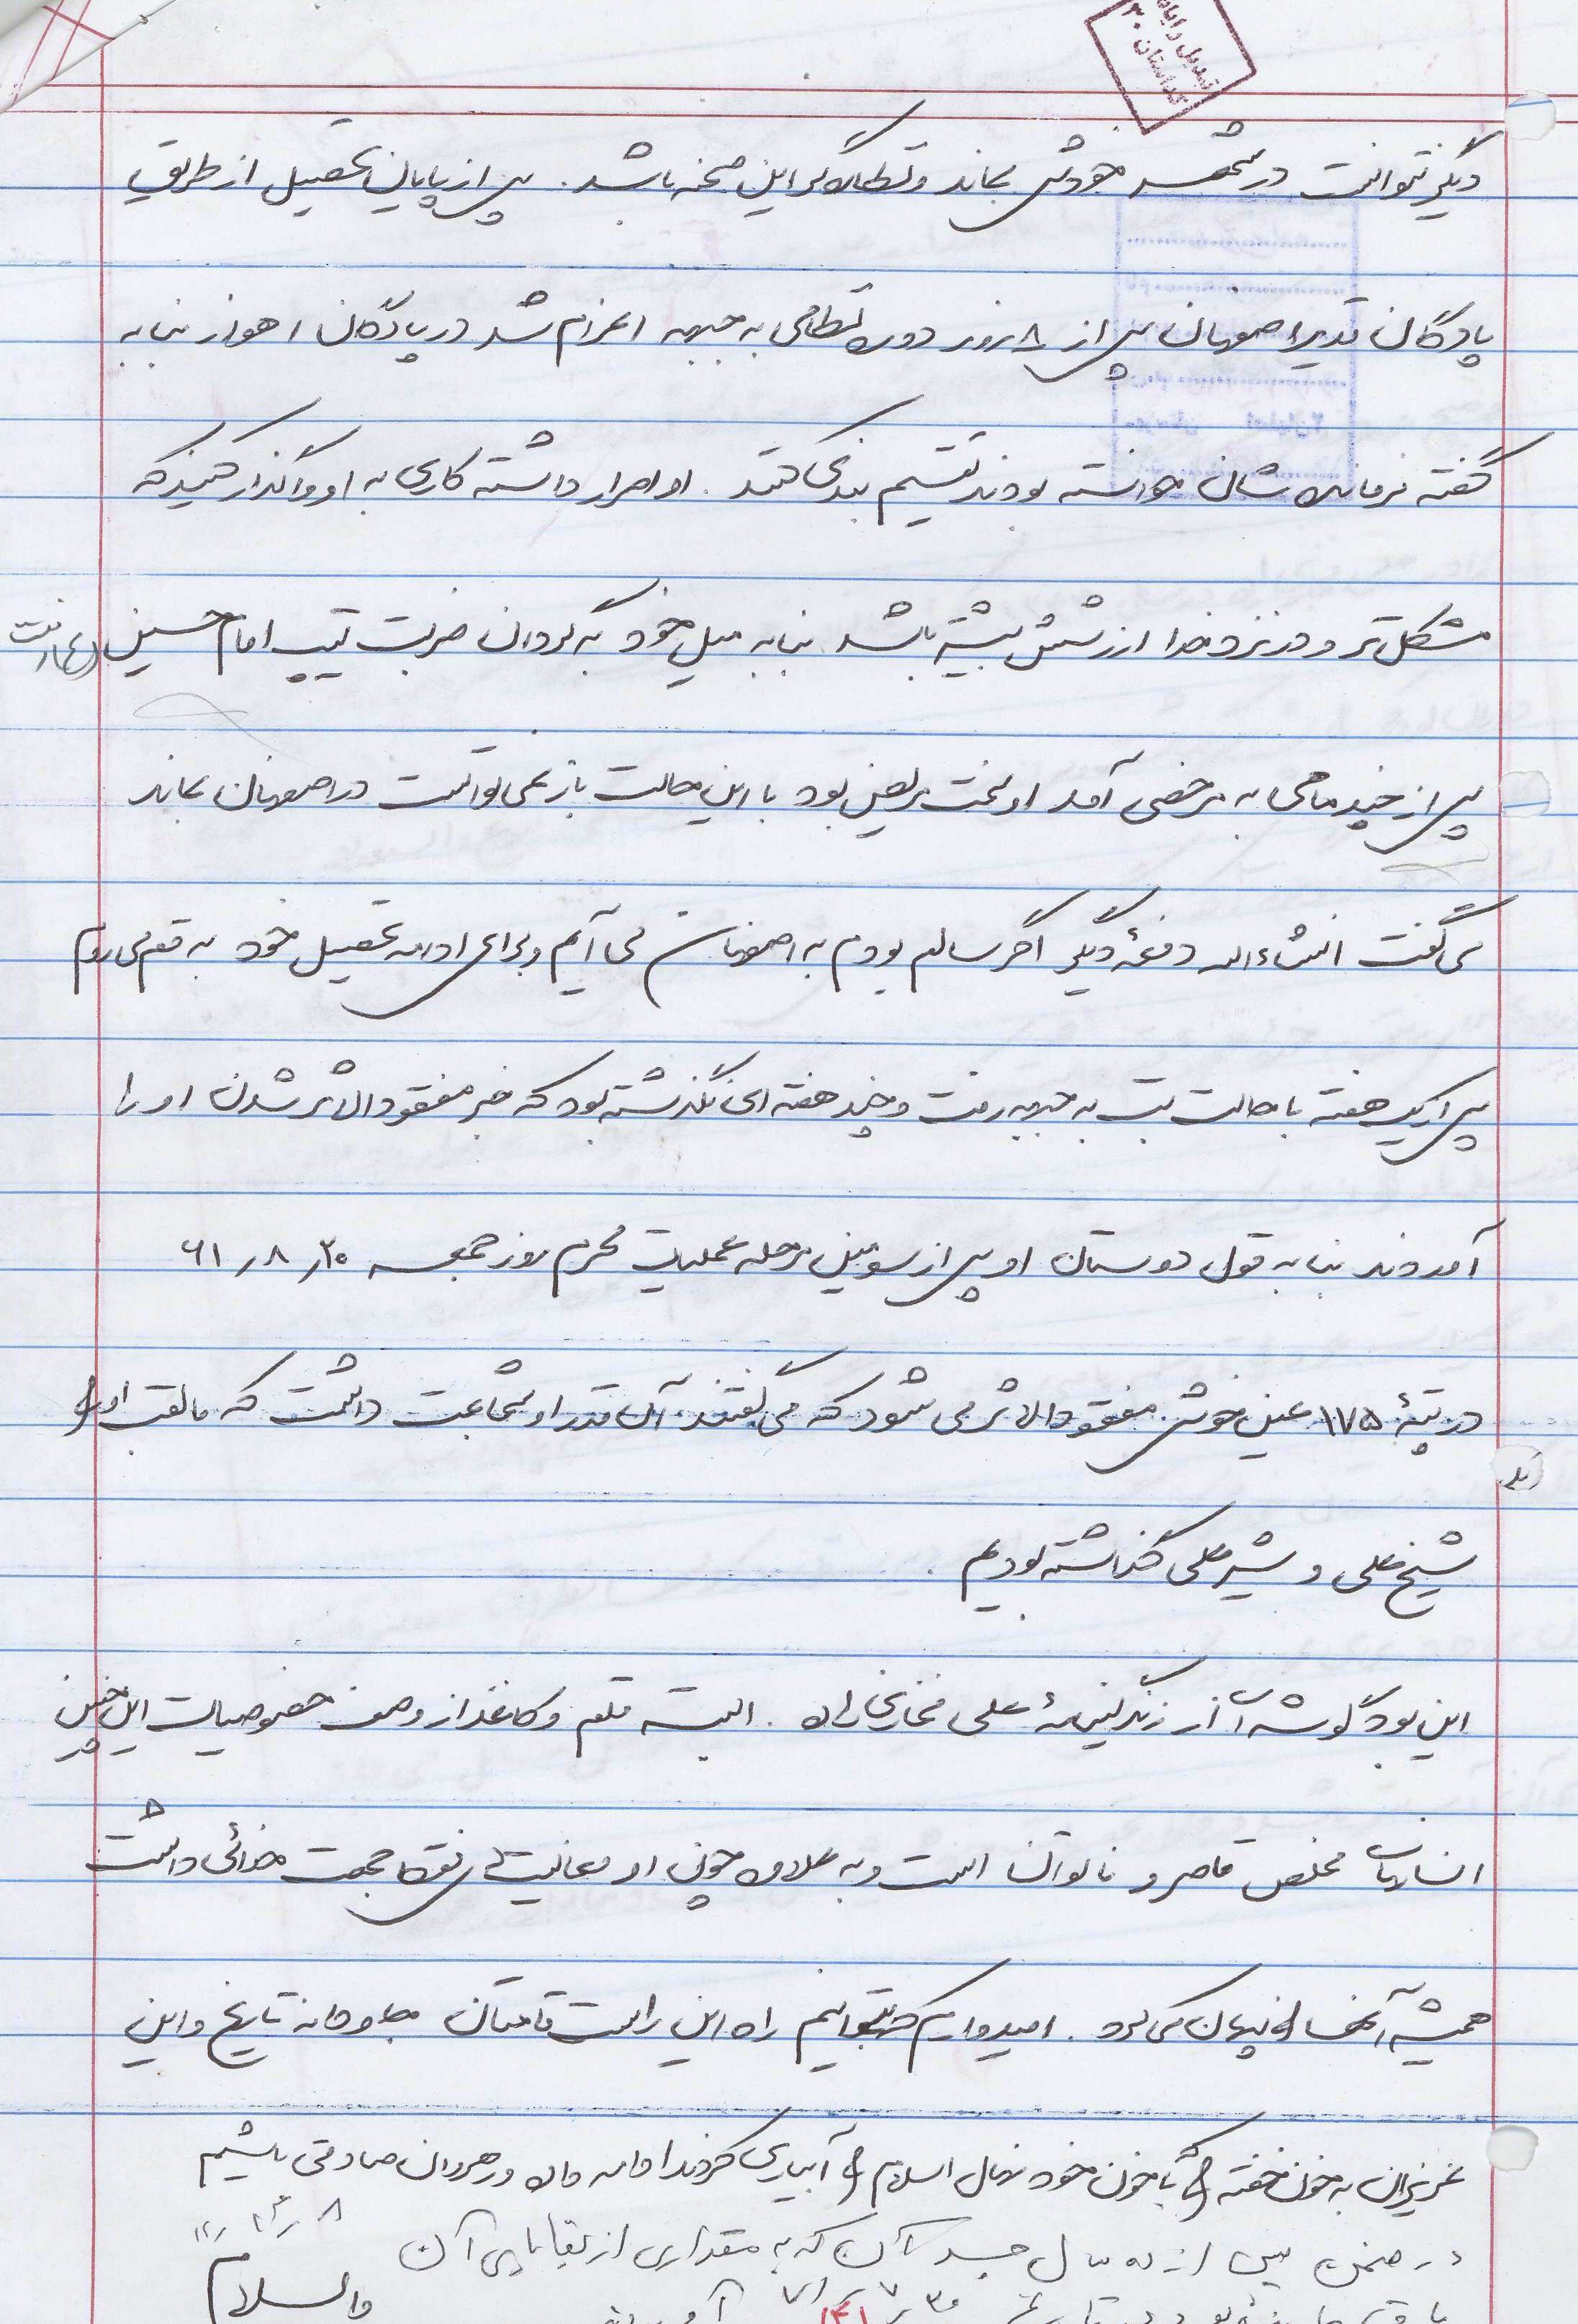 تبدیل رایانه
گلستان ۳۰
دیگر نتوانست در شهر خودش بماند و نظاره‌گر این صحنه باشد. پس از پایان تحصیل از طریق
پادگان غدیر اصفهان پس از ۸ روز دوره نظامی به جبهه اعزام شد در پادگان اهواز بنا به
گفته فرمانده شان خواسته بودند تقسیم بندی کنند. او اصرار داشته کاری به او واگذار کنید که
مشکل تر و در نزد خدا ارزشش بیشتر باشد بنا به میل خود به گردان ضربت تیپ امام حسین (ع) رفت
پس از چند ماهی به مرخصی آمد او سخت مریض بود با این حالت باز نمی توانست در اصفهان بماند
می گفت انشاءاله دفعهٔ دیگر اگر سالم بودم به اصفهان می آیم و برای ادامه تحصیل خود به قم می روم
پس از یک هفته با حالت تب به جبهه رفت و چند هفته ای نگذشته بود که خبر مفقودالاثر شدن او را
آوردند بنا به قول دوستان او پس از سومین مرحله عملیات محرم روز جمعه ۲۰ر۸ر۶۱
در تپهٔ ۱۷۵ عین خوش مفقودالاثر می شود که می گفتند آن قدر او شجاعت داشت که ما لقب او را
شیخ علی و شیر علی گذاشته بودیم.
این بود گوشه‌ای از زندگینامهٔ علی زاده. البته قلم و کاغذ از وصف خصوصیات این چنین
انسانهای مخلص قاصر و ناتوان است و به علاوه چون او فعالیتش فقط جهت خدائی داشت
همیشه آنها را پنهان می کرد. امیدواریم که بتوانیم راه این راست قامتان جاودانه تاریخ و این
عزیزان به خون خفته را که با خون خود نهال اسلام را آبیاری کردند ادامه داده و رهروان صادقی باشیم
در ضمن پس از ده سال جسد آن که به مقداری از بقایای آن
والسلام